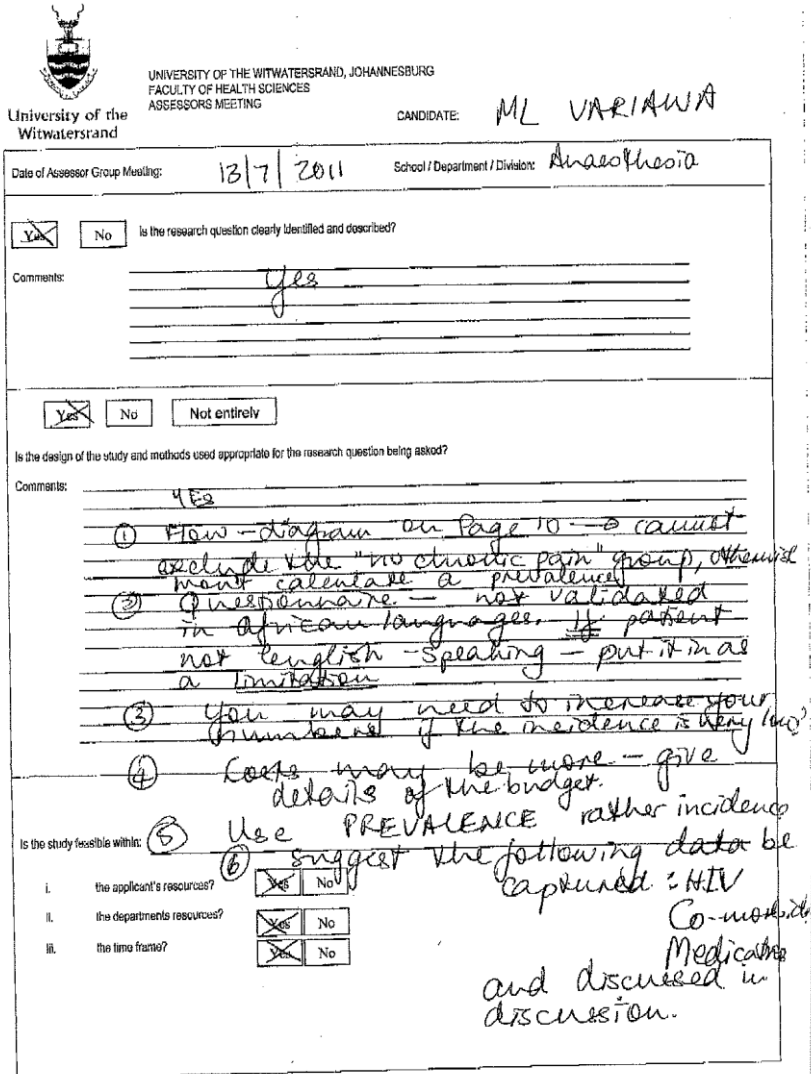 UNIVERSITY OF THE WITWATERSRAND, JOHANNESBURG
FACULTY OF HEALTH SCIENCES
ASSESSORS MEETING
University of the
Witwatersrand
CANDIDATE: ML VARIAWA
Date of Assessor Group Meeting: 13/7/2011 School / Department / Division: Anaesthesia
Yes No Is the research question clearly identified and described?
Comments: yes
Yes No Not entirely
Is the design of the study and methods used appropriate for the research question being asked?
Comments: YES
① Flow-diagram on Page 10 → cannot
exclude the "no chronic pain" group, otherwise
calculate a prevalence
② Questionnaire - not validated
in African languages. If patient
not English-speaking - put it in as
a limitation
③ You may need to increase your
numbers if the incidence is very low
④ Costs may be more - give
details of the budget.
⑤ Use PREVALENCE rather incidence
Is the study feasible within:
⑥ suggest the following data be
captured : HIV
Co-morbid
Medications
and discussed in
discussion.
i. the applicant's resources? Yes No
ii. the departments resources? Yes No
iii. the time frame? Yes No